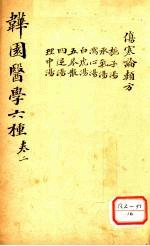 韡園醫學六種 卷二
傷寒論類方
梔子湯
承氣湯
瀉心湯
白虎湯
五苓散
四逆湯
理中湯